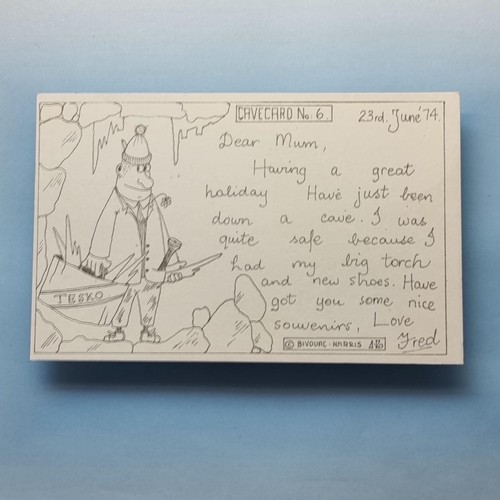 CAVECARD No. 6.
23rd. June '74.
Dear Mum,
Having a great
holiday Have just been
down a cave. I was
quite safe because I
had my big torch
and new shoes. Have
got you some nice
souvenirs, Love
Fred
TESKO
© BIVOUAC-HARRIS